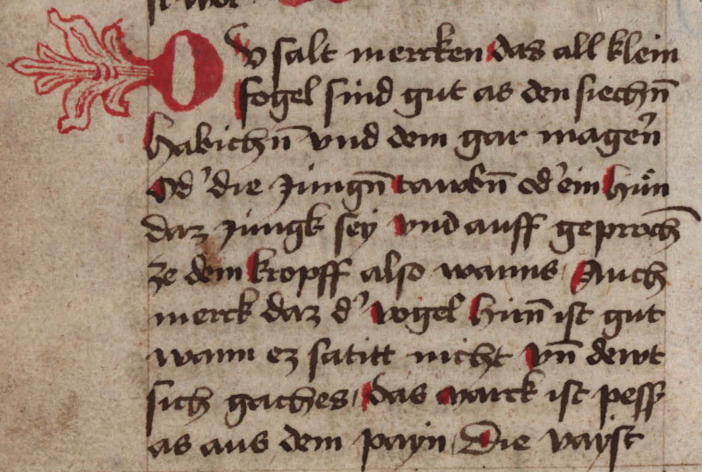 DV salt mercken das all klein
fogel sind gut as den siechn̄
habichn̄ vnd dem gar magern̄
Od' die Jungn̄ tawbn̄ od' ein hůn
daz Jungk sey vnd auff geproch̄
ze dem kropff also warms Auch
merck daz d' vogel hirn̄ ist gut
wann ez satitt nicht vn̄ dewt
sich gaches / das marck ist pess
as aus dem payn / Die vayst